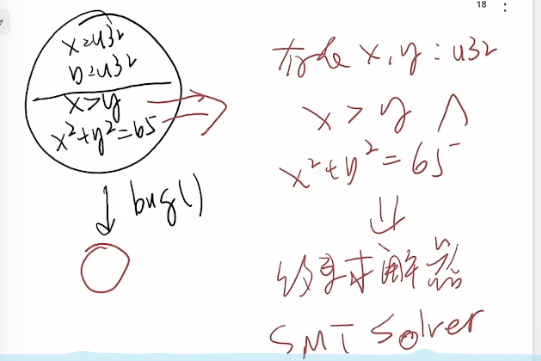 18
x=u32
y=u32
x>y
x²+y²=65
bug()
存在 x, y : u32
x > y ∧
x²+y² = 65
⇓
约束求解器
SMT Solver